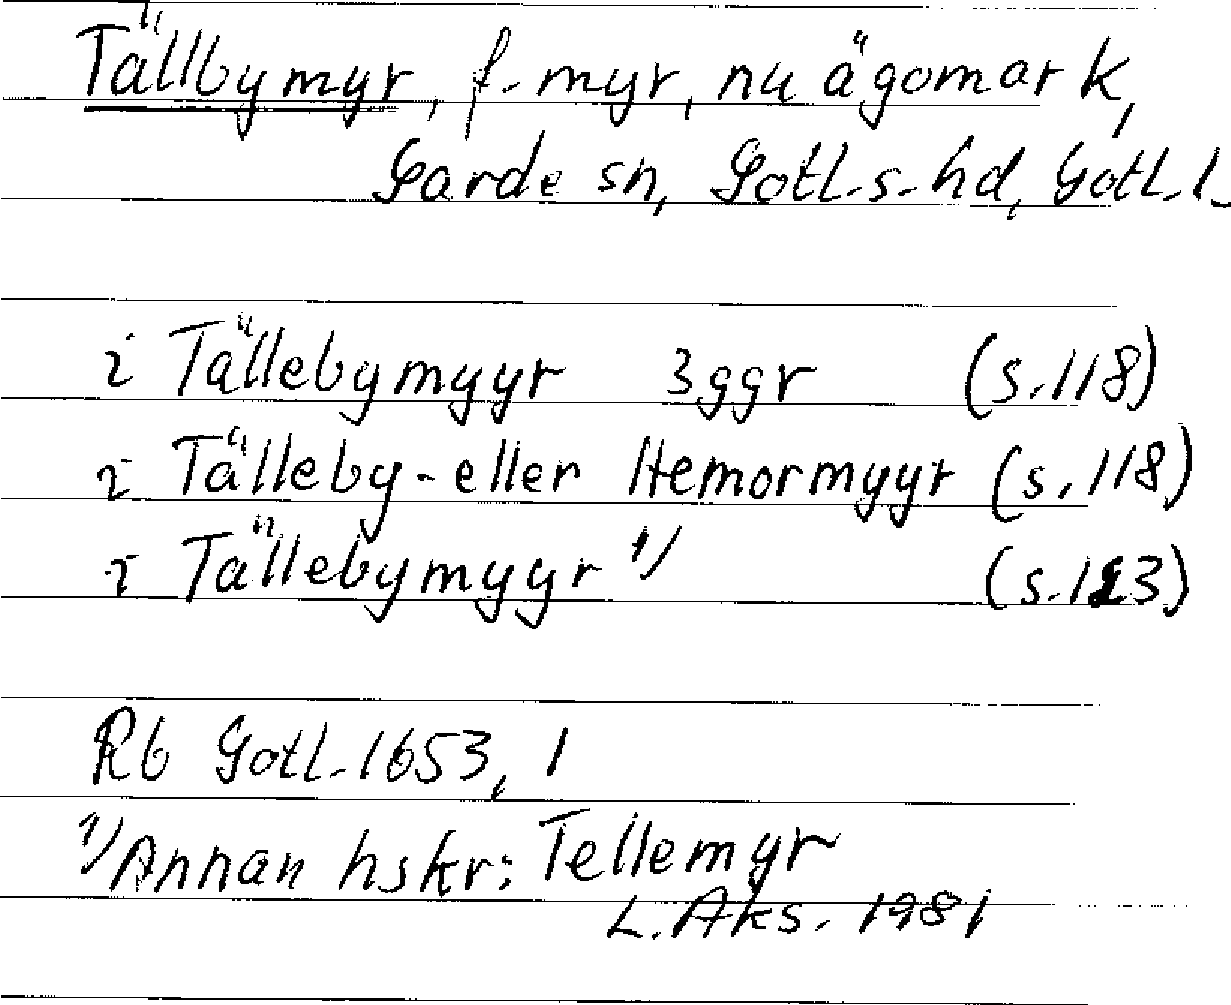 Tällbymyr, f. myr, nu ägomark,
Garde sn, Gotl.s. hd, Gotl.l.
i Tällebymyyr 3 ggr (s. 118)
i Tälleby- eller Hemormyyr (s. 118)
i Tällebymyyr 1) (s. 123)
Rb Gotl. 1653, 1
1) Annan hskr: Tellemyr
L. Aks. 1981